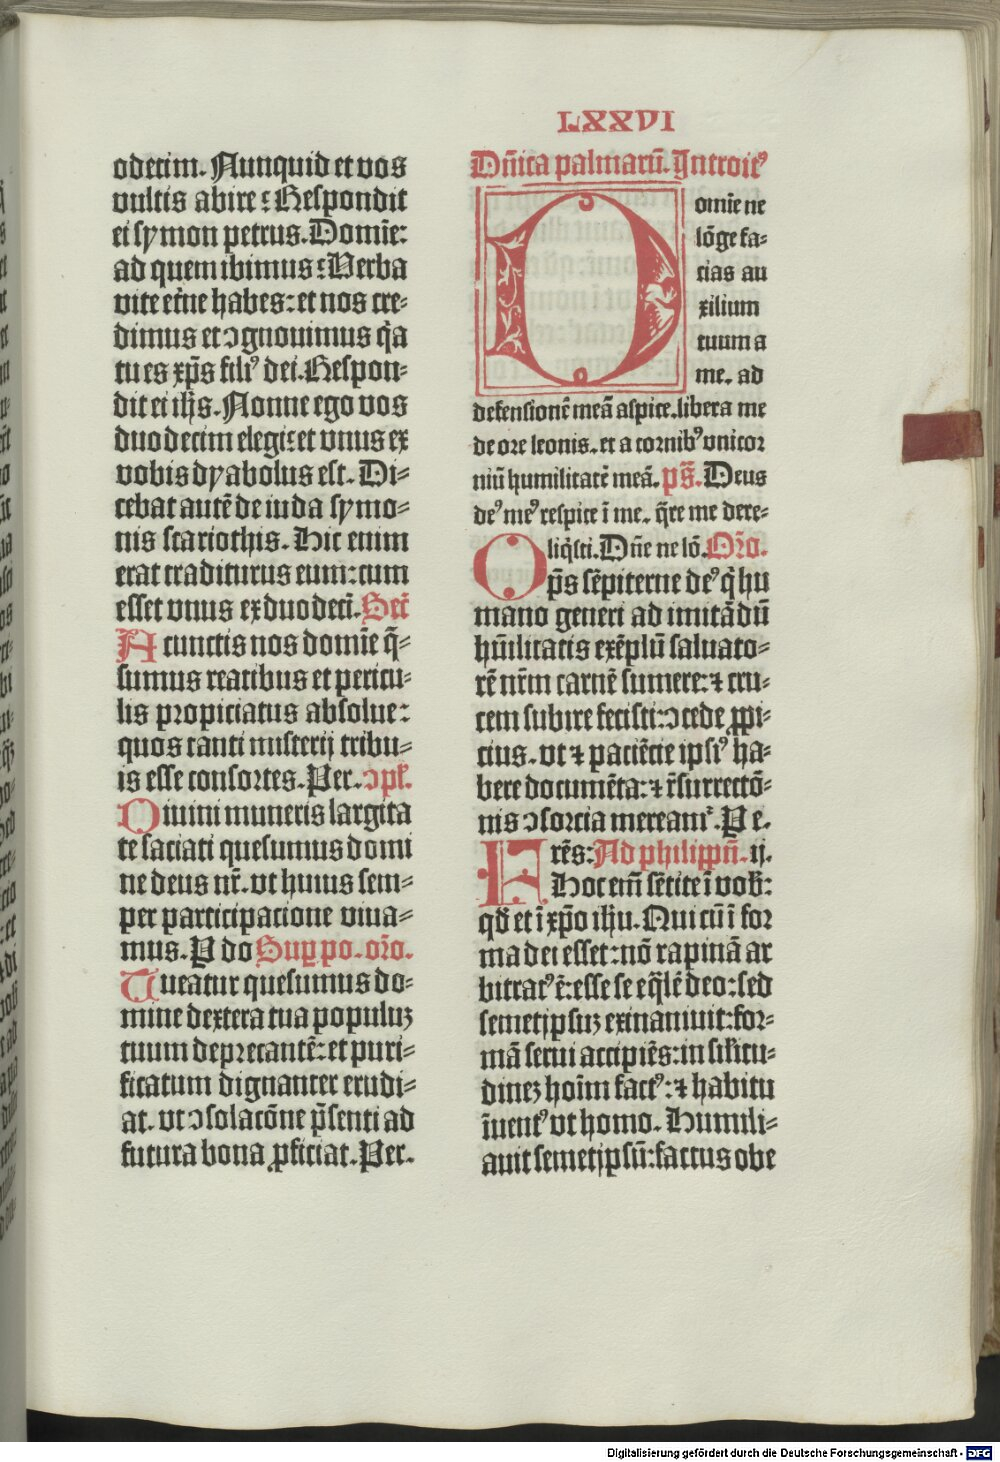 LXXVI
odecim. Nunquid et vos
vultis abire? Respondit
ei symon petrus. Domīe:
ad quem ibimus? Verba
vite et̄ne habes: et nos cre-
dimus et ꝯgnouimus q̄a
tu es xp̄s filiꝰ dei. Respon-
dit ei ih̄s. Nonne ego vos
duodecim elegi: et vnus ex
vobis dyabolus est. Di-
cebat autē de iuda symo-
nis scariothis. Hic enim
erat traditurus eum: cum
esset vnus ex duodecī. Secr̄
A cunctis nos domīe q̄-
sumus reatibus et pericu-
lis propiciatus absolue:
quos tanti misterij tribu-
is esse consortes. Per. ꝯpl̄.
Diuini muneris largita
te saciati quesumus domi
ne deus nr̄. vt huius sem-
per participacione viua-
mus. P do Sup po. or̄o.
Tueatur quesumus do-
mine dextera tua populuꝫ
tuum deprecantē: et puri-
ficatum dignanter erudi-
at. vt ꝯsolacōne p̄senti ad
futura bona ꝓficiat. Per.
Dn̄ica palmarū. Introitꝰ
Domīe ne
lōge fa-
cias au
xilium
tuum a
me. ad
defensionē meā aspice. libera me
de ore leonis. et a cornibꝰ vnicor
niū humilitatē meā. ps̄. Deus
deꝰ meꝰ respice ī me. q̄re me dere-
liq̄sti. Dn̄e ne lō. Or̄o.
Op̄s sēpiterne deꝰ q̄ hu
mano generi ad imitādū
hūilitatis exēplū saluato-
rē nr̄m carnē sumere: ⁊ cru-
cem subire fecisti: ꝯcede ꝓpi-
cius. vt ⁊ paciēcie ipsiꝰ ha-
bere documēta: ⁊ r̄surrectō-
nis ꝯsorcia mereamᷣ. P e.
Frēs: Ad philippn̄. ij.
Hoc em̄ sētite ī vob̄:
qd̄ et ī xp̄o ih̄u. Qui cū ī for
ma dei esset: nō rapinā ar
bitratꝰ ē: esse se eq̄lē deo: sed
semetip̄suꝫ exinaniuit: for-
mā serui accipiēs: in sil̄itu-
dineꝫ hoīm factꝰ: ⁊ habitu
īuentꝰ vt homo. Humili-
auit semetip̄sū: factus obe
Digitalisierung gefördert durch die Deutsche Forschungsgemeinschaft - DFG